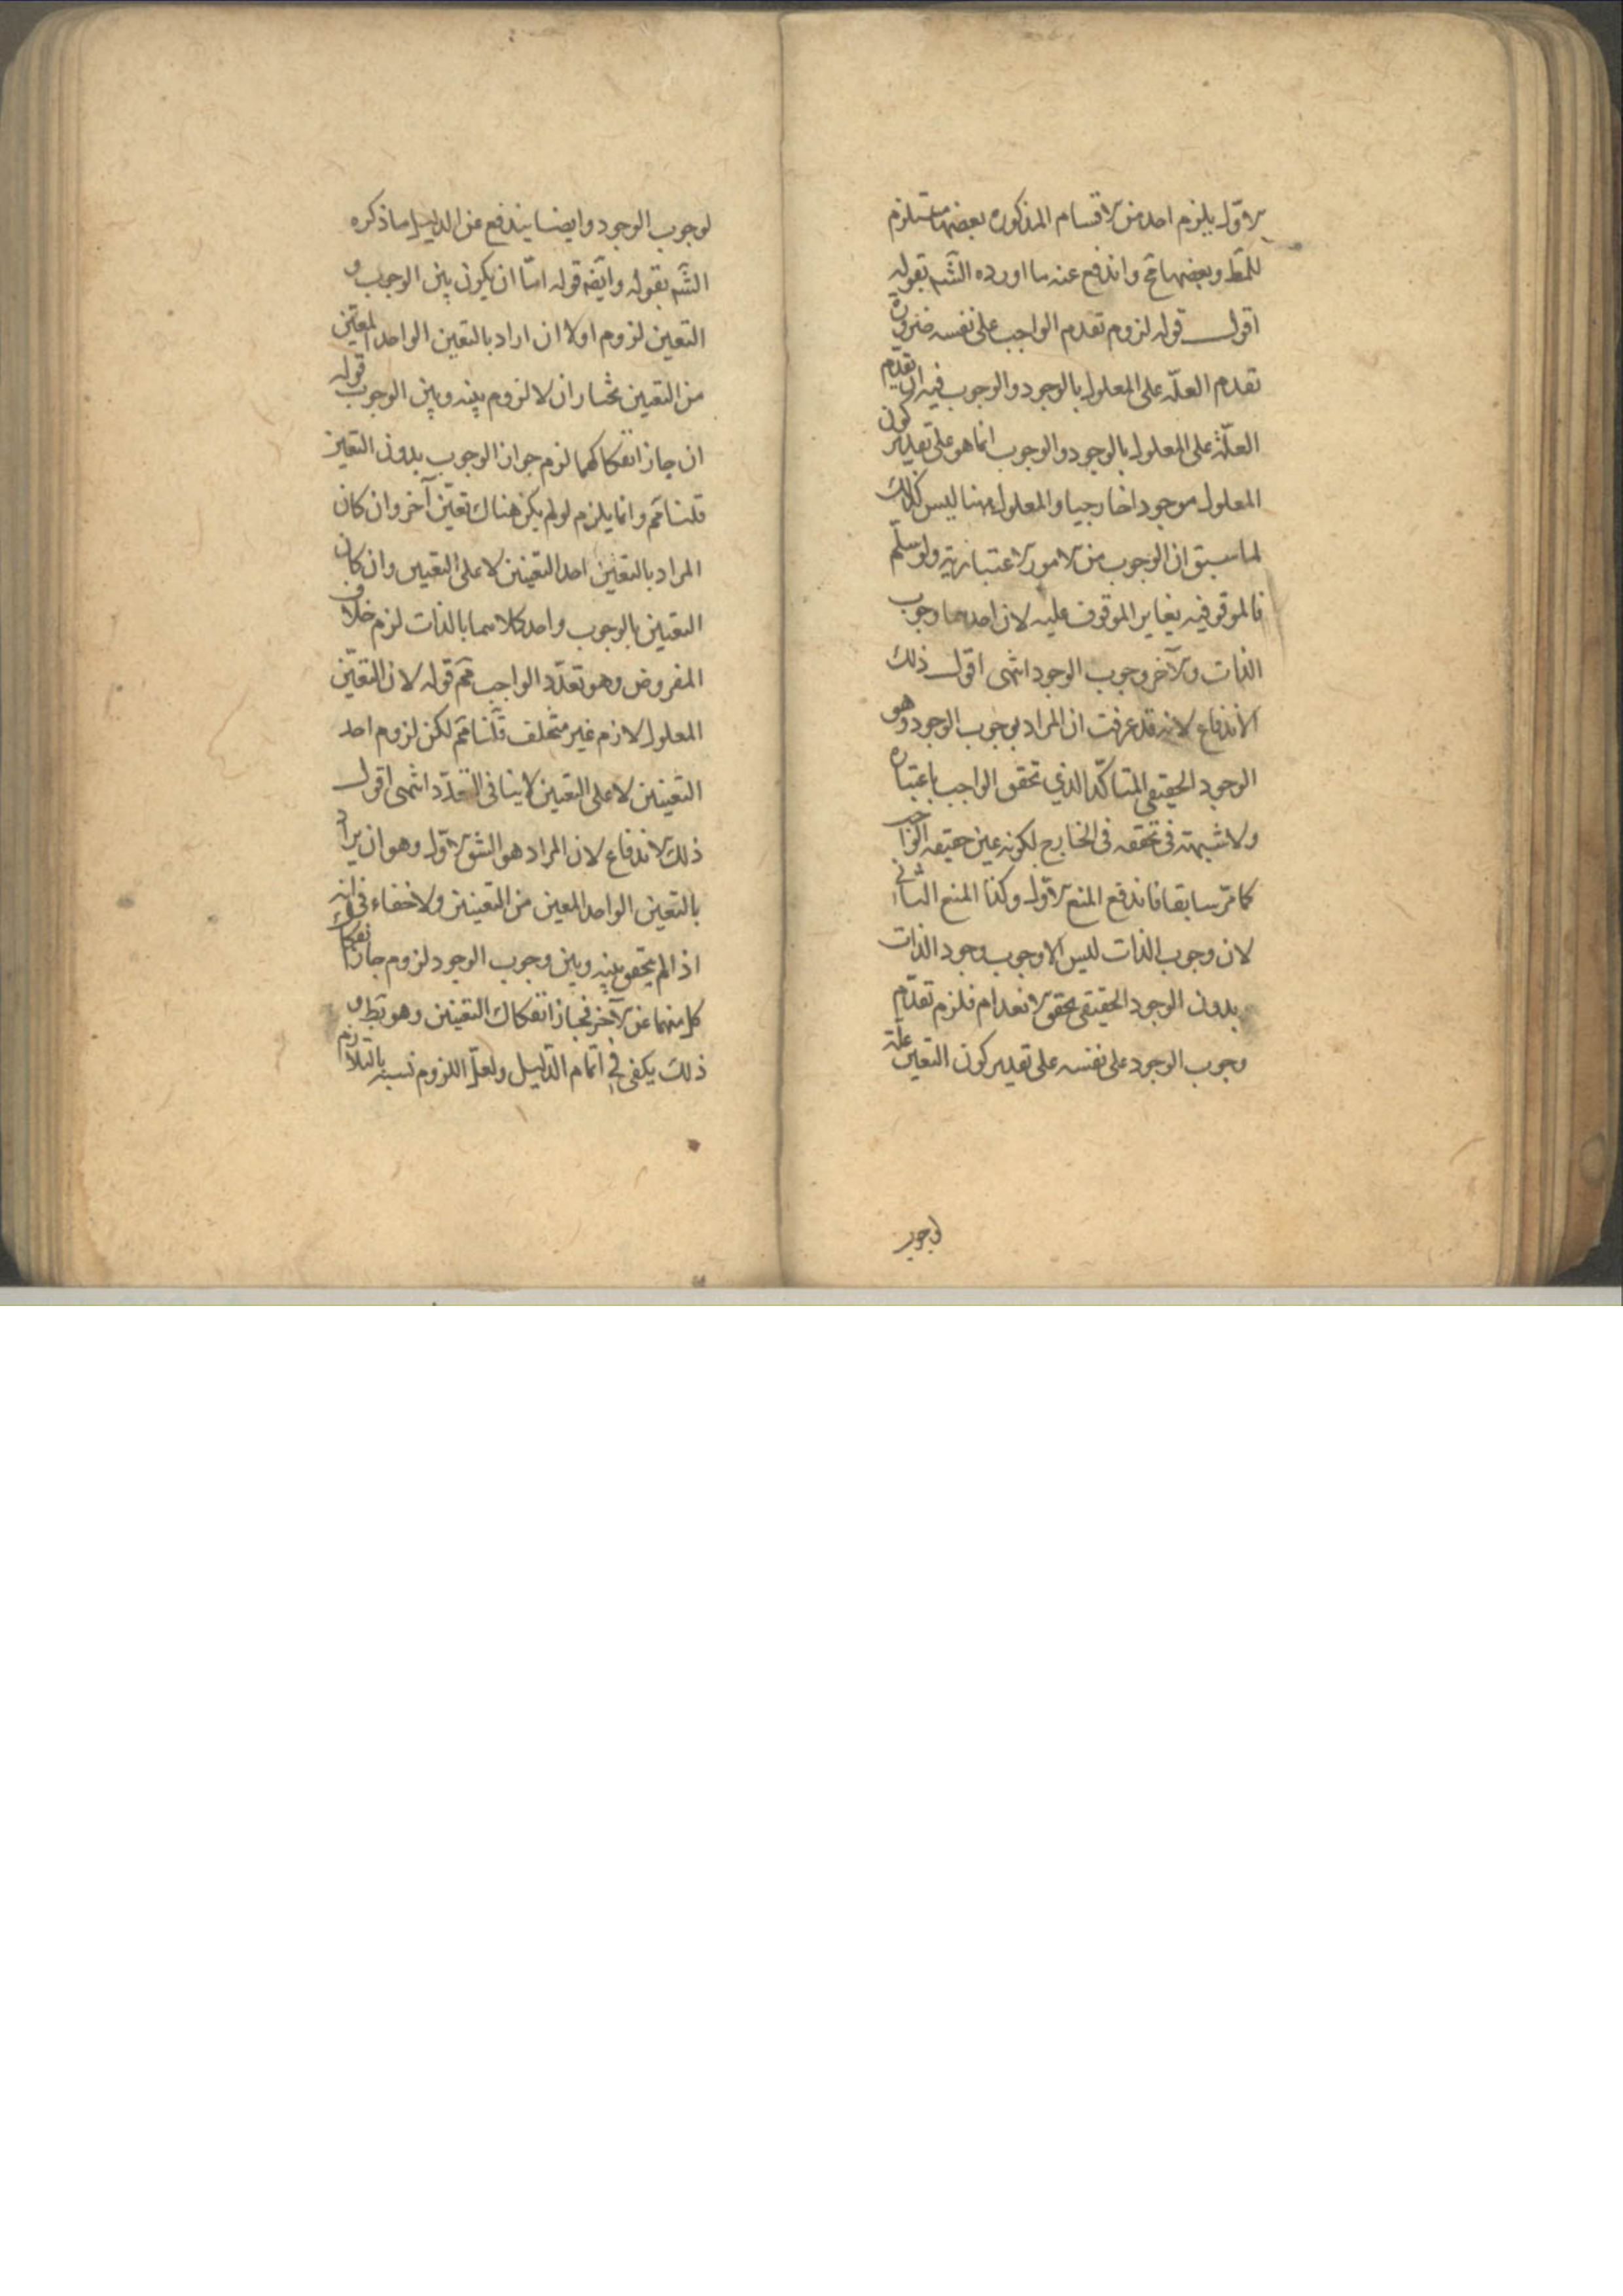 الاول يلزم احد من الاقسام المذكوره بعضها مستلزم
للمط وبعضها مح واندفع عنه ما اورده الشم بقوله
اقول قوله لزوم تقدم الواجب على نفسه ضرورة
تقدم العلّة على المعلول بالوجود والوجوب فيه ان تقدّم
العلّة على المعلول بالوجود والوجوب انما هو على تقدير كون
المعلول موجودا خارجيا والمعلول ههنا ليس كذلك
لما سبق ان الوجوب من الامور الاعتبارية ولو سلّم
فالموقوفيه يغاير الموقوف عليه لان احدهما وجوب
الذات والآخر وجوب الوجود انتهى اقول ذلك
الاندفاع لانه قد عرفت ان المراد بوجوب الوجود وهو
الوجود الحقيقى المتأكّد الذي تحقق الواجب باعتباره
ولا شبهة فى تحققه فى الخارج لكونه عين حقيقه الواجب
كما مرّ سابقا فاندفع المنع الاوّل وكذا المنع الثاني
لان وجوب الذات ليس الا وجوب وجود الذات
بدون الوجود الحقيقى يحقق الانعدام فلزم تقدّم
وجوب الوجود على نفسه على تقدير كون التعين علّة
لوجوب
لوجوب الوجود وايضا يندفع عن الدليل ما ذكره
الشم بقوله وايضه قوله امّا ان يكون بين الوجوب و
التعين لزوم اولا ان اراد بالتعين الواحد المعيّن
من التعين نختار ان لا لزوم بينه وبين الوجوب قوله
ان جاز انفكاكهما لزم جواز الوجوب بدون التعين
قلنا مم وانما يلزم لو لم يكن هناك تعيّن آخر وان كان
المراد بالتعين احد التعينين لا على التعيين وان كان
التعين بالوجوب واحد كلاهما بالذات لزم خلاف
المفروض وهو تعدّد الواجب مم قوله لان التعيّن
المعلول لازم غير متخلف قلنا مم لكن لزوم احد
التعينين لا على التعيين لا ينافى التعدّد انتهى اقول
ذلك الاندفاع لان المراد هو الشق الاوّل وهو ان يراد
بالتعين الواحد المعين من التعينين ولا خفاء فى انه
اذا لم يتحقق بينه وبين وجوب الوجود لزوم جاز انفكاك
كل منهما عن الآخر فجاز انفكاك التعينين وهو بط و
ذلك يكفى في اتمام الدّليل ولعلّ اللزوم نسبه بالتلازم